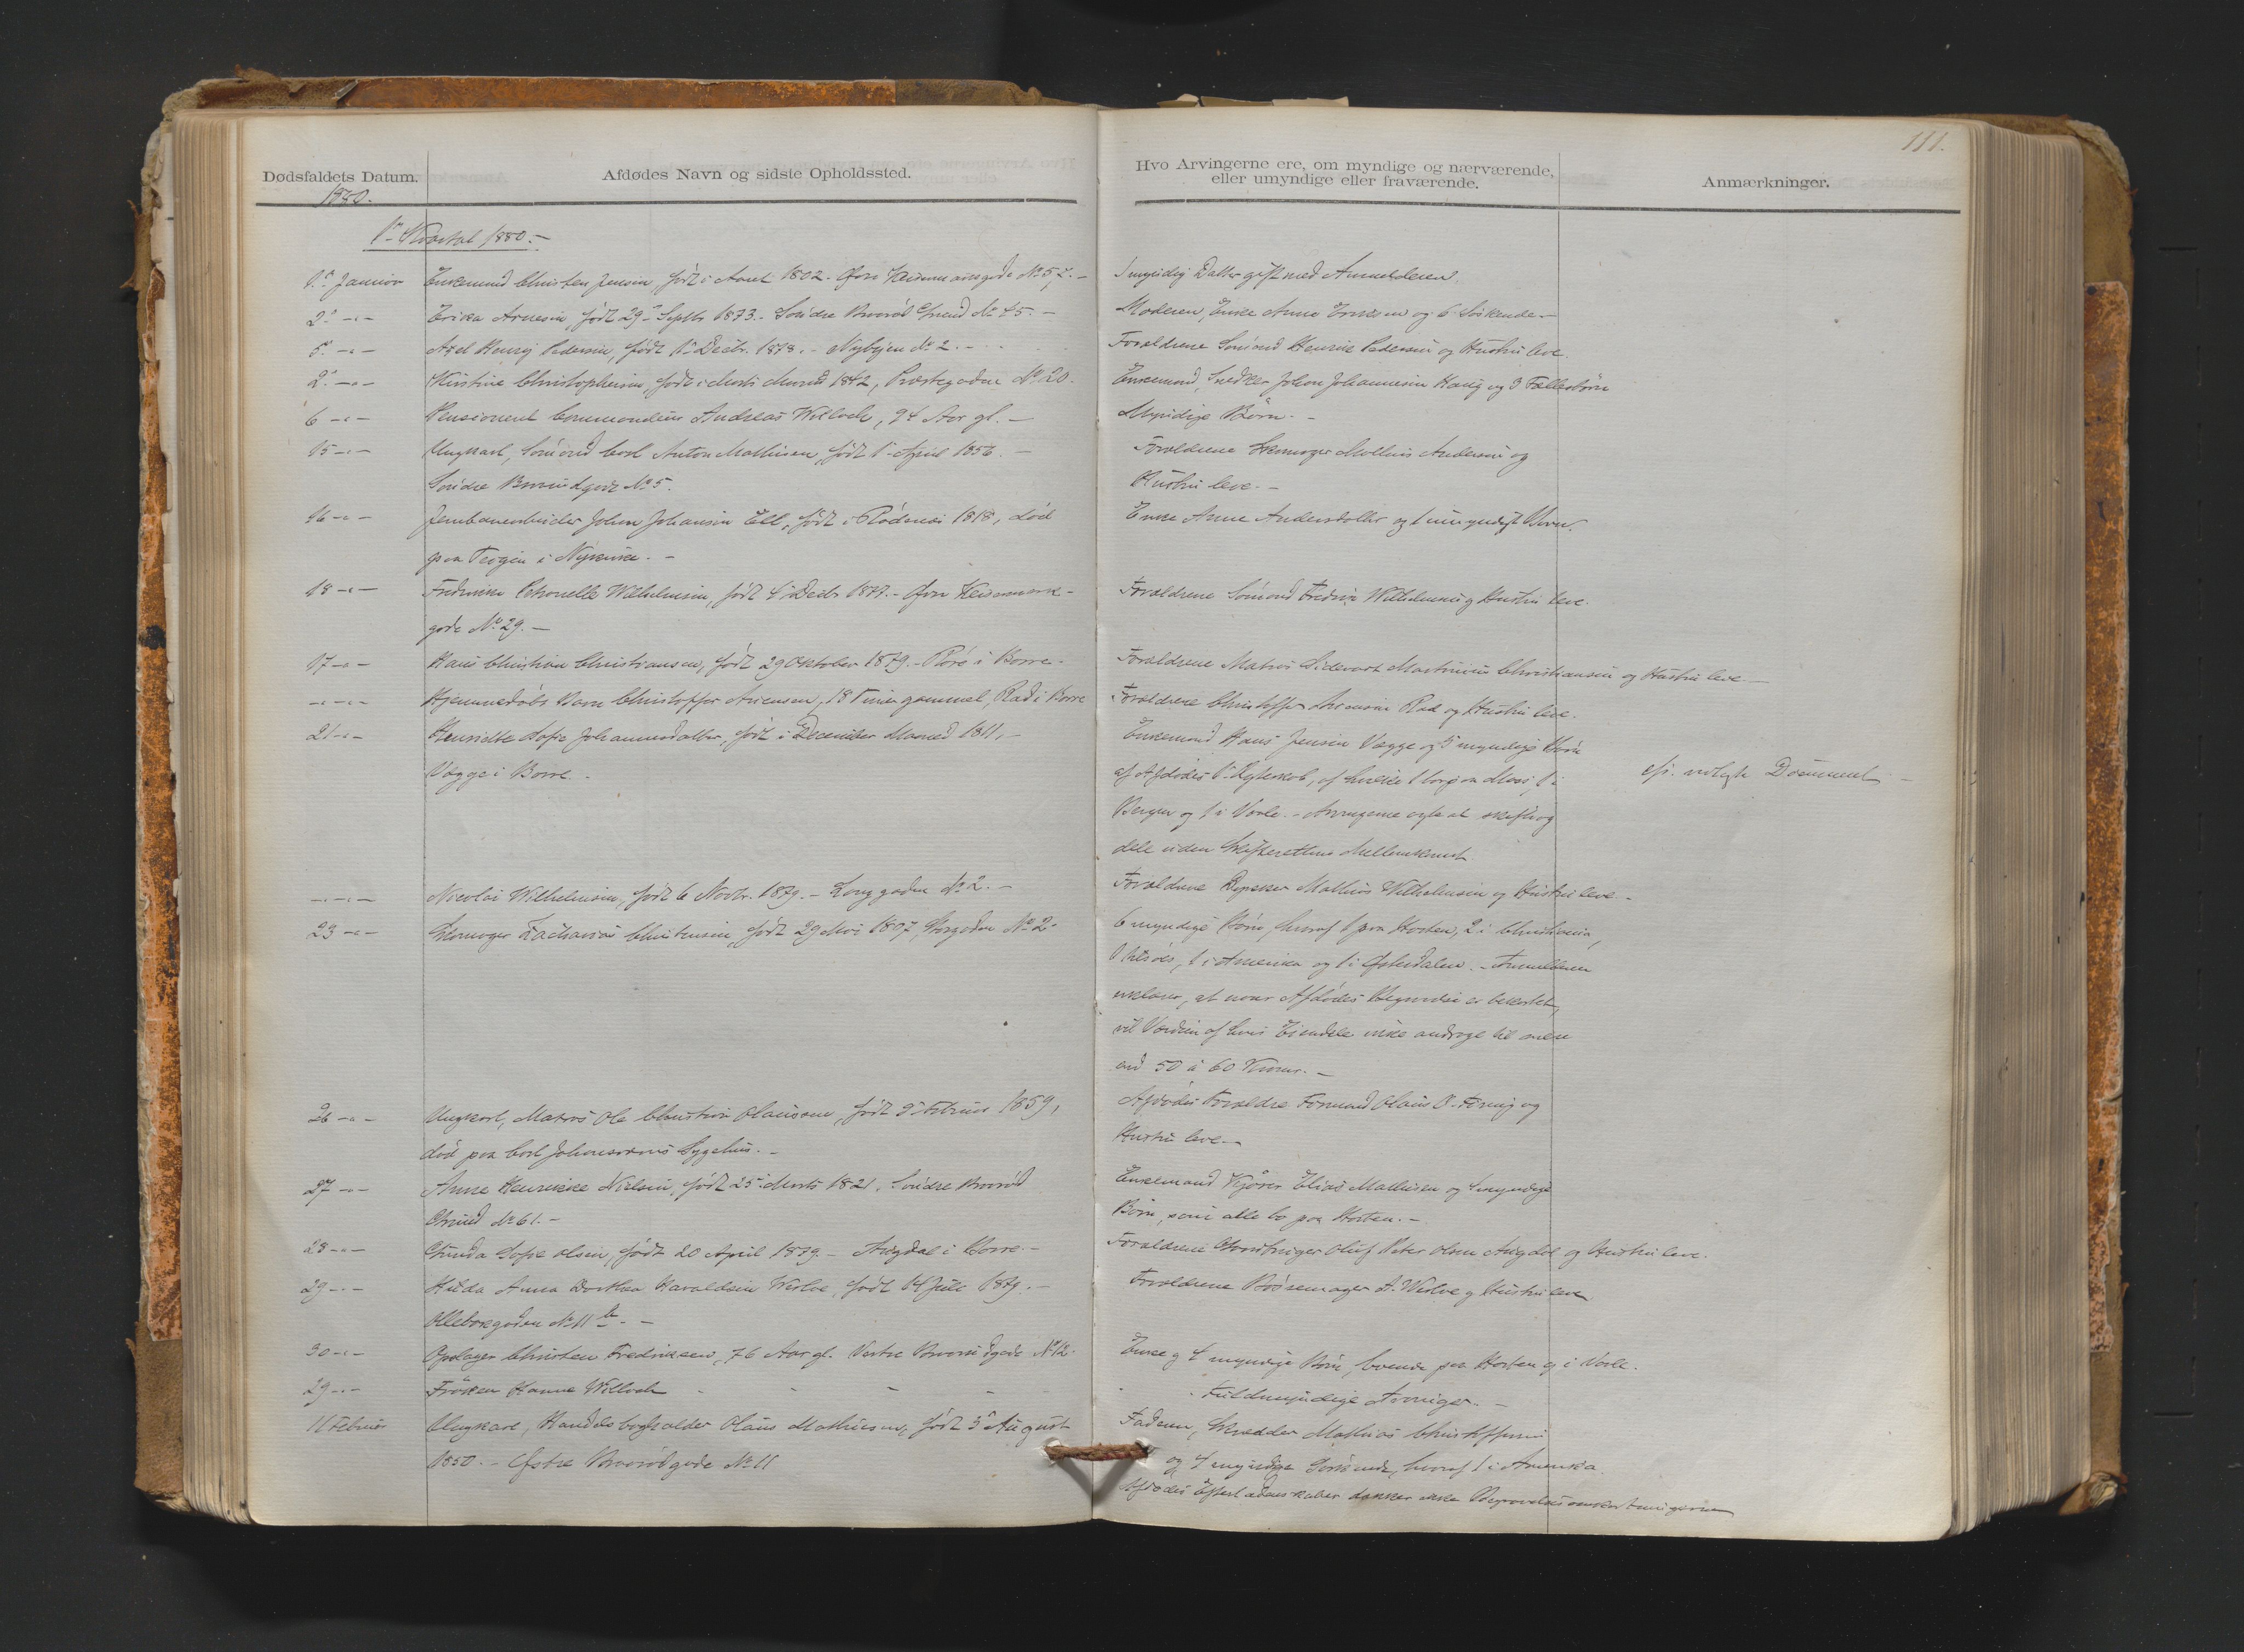 111.
Dødsfaldets Datum.
Afdødes Navn og sidste Opholdssted.
Hvo Arvingerne ere, om myndige og nærværende,
eller umyndige eller fraværende.
Anmærkninger.
1880.
1ste Kvartal 1880.-
1ste Januar Enkemand Christen Jensen, født i Aaret 1802. Øvre No 57.-
1 myndig Datter gift med Anmelderen.
2. -"- Erika Arnesen, født 29 Septbr 1873.- Søndre Braarød Grund No 45.-
Moderen, Enke Anne og 6 Søskende.-
5. -"- Axel Henrij Pedersen, født 15 Decbr. 1878.- Nybyen No 2.-
Forældrene Sømand Henrik Pedersen og Hustru leve.
2. -"- Kirstine Christophersen, født i Marts Maaned 1842, Præstegaden No 20.
Enkemand, Snedker Johan Johannesen Haug og 3 Fællesbørn
6 -"- Pensioneret Commandeur Andreas Willoch, 94 Aar gl.-
Myndige Børn.-
15 -"- Ungkarl, Sømand Carl Anton Mathisen, født 1 April 1856.-
Forældrene Skomager Mathias Andersen og
Søndre No 5.
Hustru leve.-
16 -"- Jernbanearbeider Johan Johansen Ell, født i Rødenæs 1818, død
Enke Anne Andersdatter og 1 umyndigt Barn.
paa Teigen i Nykirke.-
18 -"- Fredrikke Petronelle Wilhelmsen, født 4 Decbr 1877.- Øvre
Forældrene Sømand Fredrik Wilhelmsen og Hustru leve.
gade No 29.-
17 -"- Hans Christian Christiansen, født 29 Oktober 1879.- Røré i Borre.
Forældrene Matros Martinius Christiansen og Hustru leve.-
-"-"- Hjemmedøbt Barn Christoffer Arvesen, 18 Timer gammel, Rad i Borre
Forældrene Christoffer Rad og Hustru leve.
21 -"- Henriette Sofie Johannesdatter, født i December Maaned 1811,-
Enkemand Hans Jensen Vægge og 5 myndige Børn
Vægge i Borre.-
af Afdødes 1ste Ægteskab, af hvilke 1 bor paa Moss, 1 i
cfr. vedlagte Document-
Bergen og 1 i Vaale.- Arvingerne agte at skifte og
dele uden Skifterettens Mellemkomst.
-"-"- Nicolai Wilhelmsen, født 6 Novbr. 1879.- Langgaden No 2.-
Forældrene Mathias Wilhelmsen og Hustru leve.-
23 -"- Skomager Zacharias Christensen, født 29 Mai 1807, Storgaden No 2.
6 myndige Børn, hvoraf 1 paa Horten, 2 i Christiania,
1 tilsøes, 1 i Amerika og 1 i Østerdalen.- Anmelderen
erklærer, at naar Afdødes Begravelse er bekostet,
vil Værdien af hans Eiendele ikke andrage til mere
end 50 à 60 Kroner.-
26 -"- Ungkarl, Matros Ole Christian Olaussen, født 9 Februar 1859,
Afdødes Forældre Formand Olaus O. og
død paa Carl Johansværns Sygehus.-
Hustru leve.-
27 -"- Anne Henrikke Nielsen, født 25 Marts 1821. Søndre Braarød
Enkemand Kjører Elias Mathisen og myndige
Grund No 61.-
Børn, som alle bo paa Horten.-
28 -"- Gunda Sofie Olsen, født 20 April 1879.- Augdal i Borre.-
Forældrene Gaardbruger Oluf Peter Olsen Augdal og Hustru leve.
29 -"- Hilda Anna Dorthea Haraldsen Westve, født 14 Juli 1879.-
Forældrene Bøssemager A. Westve og Hustru leve.
No 11 b.-
30 -"- Oplager Christen Fredriksen, 76 Aar gl. Vestre Braarødgade No 12.
Enke og 4 myndige Børn, boende paa Horten og i Vaale.
29 -"- Frøken Hanne Willoch
Fuldmyndige Arvinger.-
11 Februar Ungkarl, Handelsbogholder Olaus Mathiesen, født 3 August
Faderen, Skrædder Mathias Christoffersen
1850.- Østre Braarødgade No 11
og 4 myndige Søskende, hvoraf 1 i Amerika.
Afdødes Efterladenskaber dækker ikke Begravelsesomkostningerne